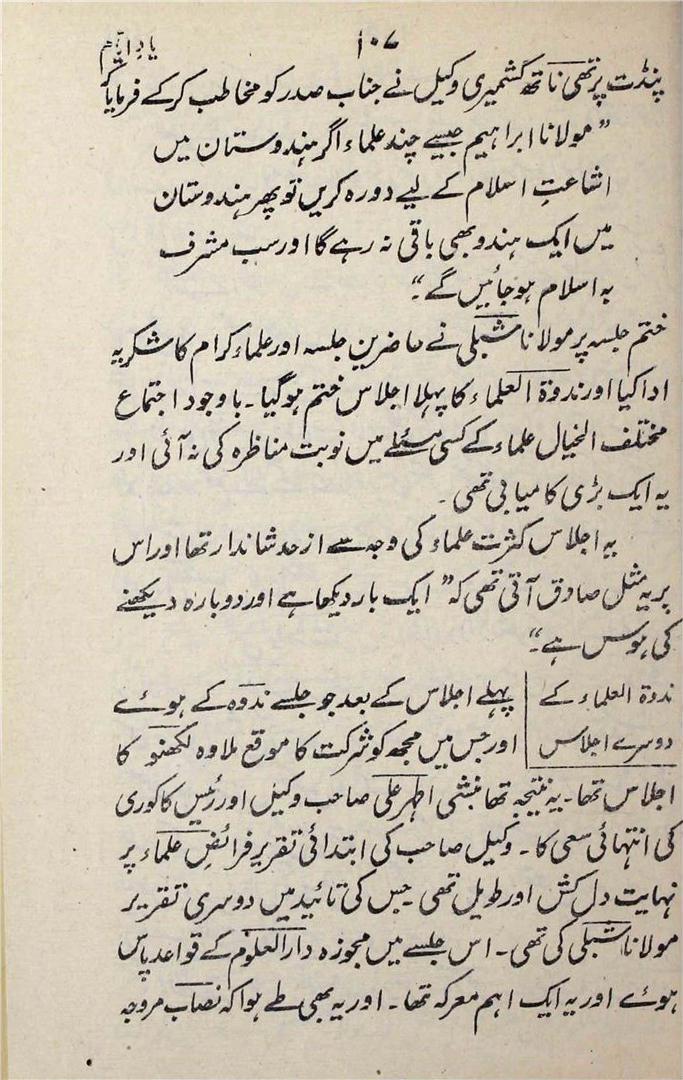 ۱۰۷
یادِ ایّام
پنڈت پرتھی ناتھ کشمیری وکیل نے جناب صدر کو مخاطب کر کے فرمایا کہ
”مولانا ابراہیم جیسے چند علماء اگر ہندوستان میں
اشاعتِ اسلام کے لیے دورہ کریں تو پھر ہندوستان
میں ایک ہندو بھی باقی نہ رہے گا اور سب مشرف
بہ اسلام ہو جائیں گے۔“
ختم جلسہ پر مولانا شبلی نے حاضرینِ جلسہ اور علماء کرام کا شکریہ
ادا کیا اور ندوۃ العلماء کا پہلا اجلاس ختم ہو گیا۔ باوجود اجتماع
مختلف الخیال علماء کے کسی مسئلے میں نوبت مناظرہ کی نہ آئی اور
یہ ایک بڑی کامیابی تھی۔
یہ اجلاس کثرت علماء کی وجہ سے از حد شاندار تھا اور اس
پر یہ مثل صادق آتی تھی کہ ”ایک بار دیکھا ہے اور دوبارہ دیکھنے
کی ہوس ہے۔“
ندوۃ العلماء کے
دوسرے اجلاس
پہلے اجلاس کے بعد جو جلسے ندوہ کے ہوئے
اور جس میں مجھ کو شرکت کا موقع ملا وہ لکھنو کا
اجلاس تھا۔ یہ نتیجہ تھا منشی اطہر علی صاحب وکیل اور رئیس کاکوری
کی انتہائی سعی کا۔ وکیل صاحب کی ابتدائی تقریر فرائضِ علماء پر
نہایت دل کش اور طویل تھی جس کی تائید میں دوسری تقریر
مولانا شبلی کی تھی۔ اس جلسے میں مجوزہ دارالعلوم کے قواعد پاس
ہوئے اور یہ ایک اہم معرکہ تھا۔ اور یہ بھی طے ہوا کہ نصاب مروجہ